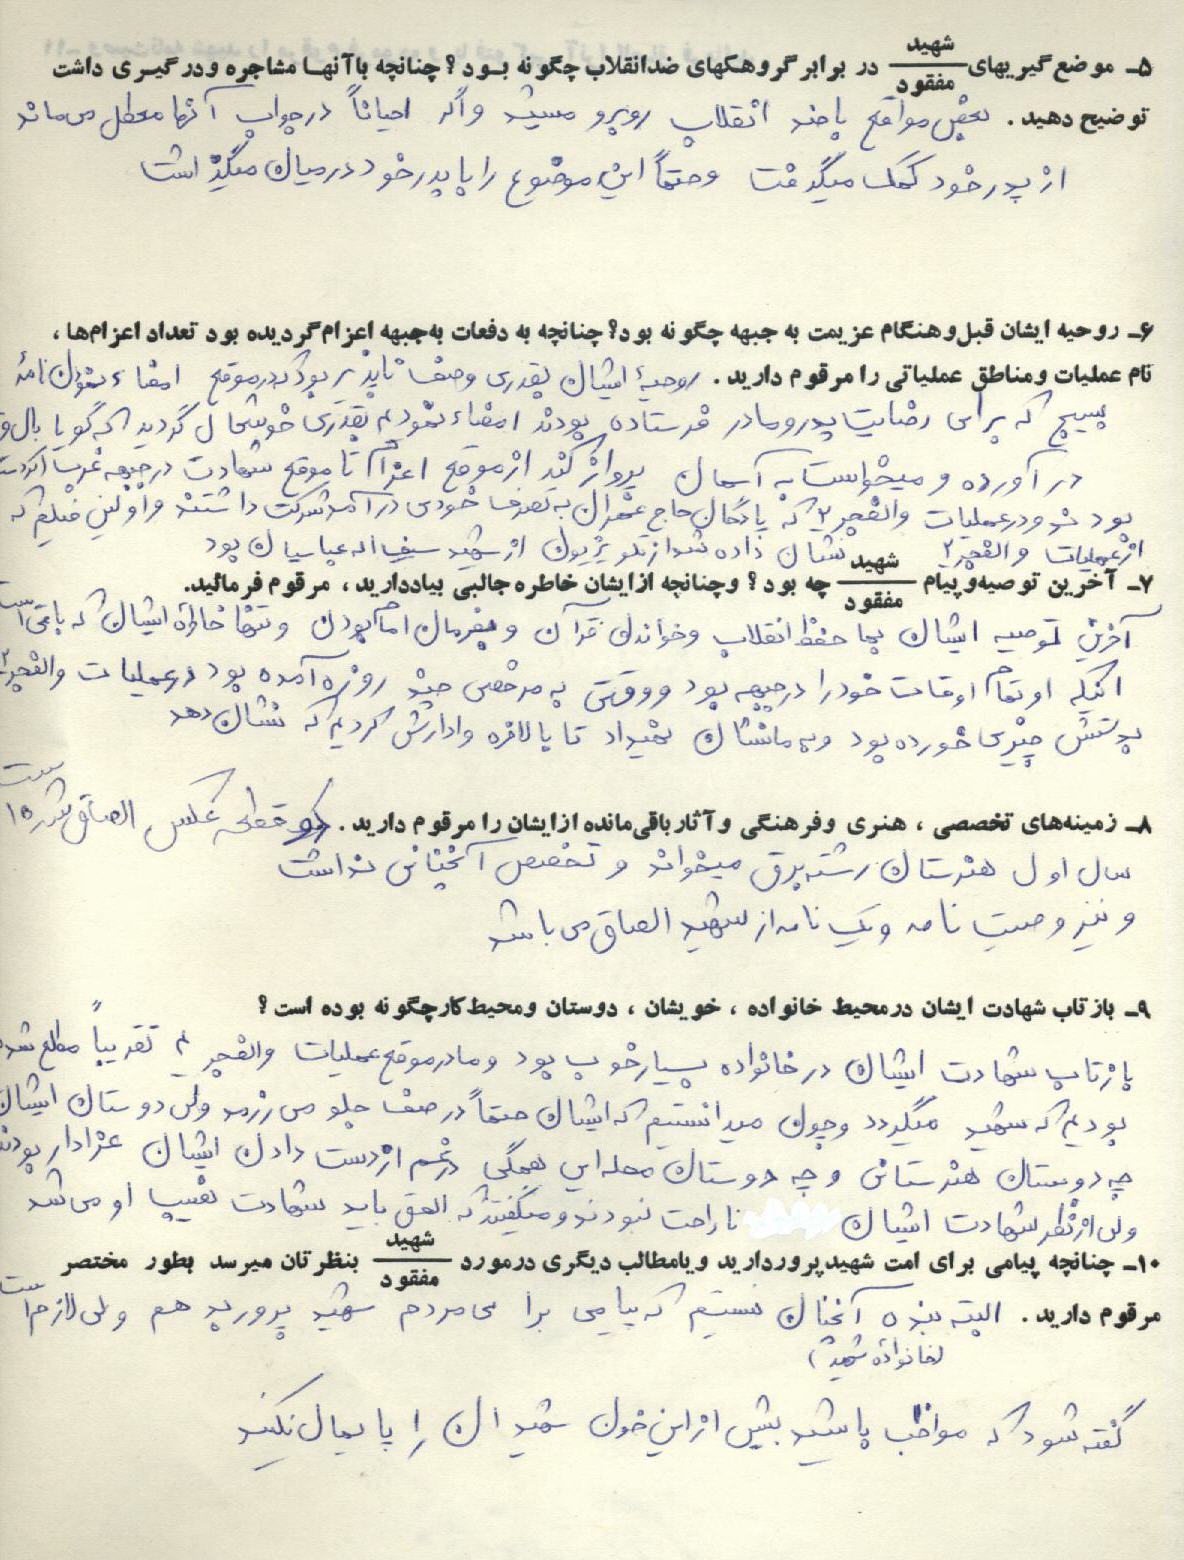 ۵ـ موضع‌گیریهای شهید/مفقود در برابر گروهکهای ضدانقلاب چگونه بود؟ چنانچه با آنها مشاجره و درگیری داشت
توضیح دهید. بعضی مواقع با ضد انقلاب روبرو میشد و اگر احیاناً در جواب آنها معطل می‌ماند
از پدر خود کمک میگرفت و حتماً این موضوع را با پدر خود در میان میگذاشت
۶ـ روحیه ایشان قبل و هنگام عزیمت به جبهه چگونه بود؟ چنانچه به دفعات به‌جبهه اعزام گردیده بود تعداد اعزام‌ها،
نام عملیات و مناطق عملیاتی را مرقوم دارید. روحیهٔ ایشان بقدری وصف ناپذیر بود که در موقع امضاء نمودن نامهٔ
بسیج که برای رضایت پدر و مادر فرستاده بودند امضاء نمودیم بقدری خوشحال گردید که گویا بال و
در آورده و میخواست به آسمان پرواز کند از موقع اعزام تا موقع شهادت در جبهه غرب
بود و در عملیات والفجر ۲ که پادگان حاج عمران به تصرف خودی در آمد شرکت داشتند و اولین فیلم که
از عملیات والفجر ۲ نشان داده شد از تلویزیون از شهید سیف اله عباسیان بود
۷ـ آخرین توصیه و پیام شهید/مفقود چه بود؟ و چنانچه از ایشان خاطره جالبی بیاد دارید، مرقوم فرمائید.
آخرین توصیه ایشان بما حفظ انقلاب و خواندن قرآن و بفرمان امام بودن و تنها خاطرهٔ ایشان که باقی است
اینکه او تمام اوقات خود را در جبهه بود و وقتی به مرخصی چند روزه آمده بود در عملیات والفجر ۲
بدستش چیزی خورده بود و به ما نشان نمیداد تا بالاخره وادارش کردیم که نشان دهد
۸ـ زمینه‌های تخصصی، هنری و فرهنگی و آثار باقی‌مانده از ایشان را مرقوم دارید. دو قطعه عکس الصاق شده است
سال اول هنرستان رشته برق میخواند و تخصص آنچنانی نداشت
و نیز وصیت نامه و یک نامه از شهید الصاق می باشد
۹ـ بازتاب شهادت ایشان در محیط خانواده، خویشان، دوستان و محیط کار چگونه بوده است؟
بازتاب شهادت ایشان در خانواده بسیار خوب بود و ما در موقع عملیات والفجر ۴ تقریباً مطلع شده
بودیم که شهید میگردد و چون میدانستیم که ایشان حتماً در صف جلو می رزمد ولی دوستان ایشان
چه دوستان هنرستانی و چه دوستان محله‌ای همگی در غم از دست دادن ایشان عزادار بودند
ولی از نظر شهادت ایشان ناراحت نبودند و میگفتند که الحق باید شهادت نصیب او می شد
۱۰ـ چنانچه پیامی برای امت شهیدپرور دارید و یا مطالب دیگری در مورد شهید/مفقود بنظرتان میرسد بطور مختصر
مرقوم دارید. البته بنده آنچنان نیستم که پیامی برای مردم شهید پرور بدهم ولی لازم است
(خانواده شهید)
گفته شود که مواظب باشید بیش از این خون شهیدان را پایمال نکنید